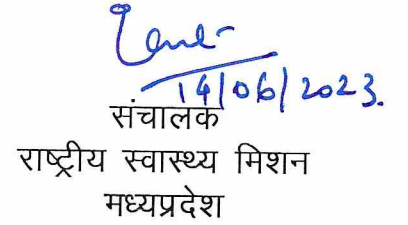 14/06/2023.
संचालक
राष्ट्रीय स्वास्थ्य मिशन
मध्यप्रदेश